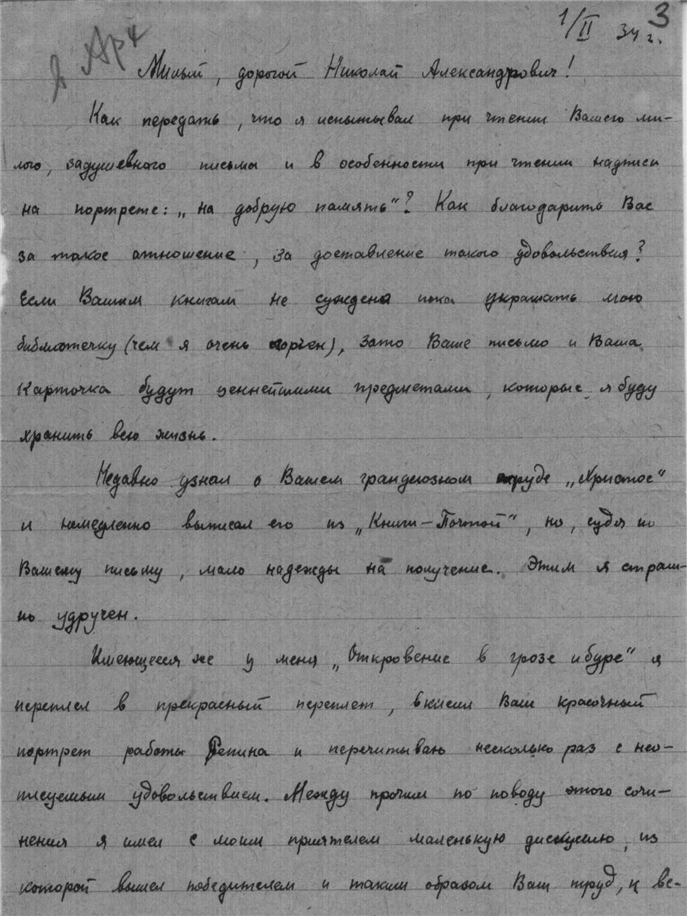 3
1/II 34 г.
в Арх
Милый, дорогой Николай Александрович!
Как передать, что я испытывал при чтении Вашего ми-
лого, задушевного письма и в особенности при чтении надписи
на портрете: „на добрую память"? Как благодарить Вас
за такое отношение, за доставление такого удовольствия?
Если Вашим книгам не суждено пока украшать мою
библиотечку (чем я очень огорчен), зато Ваше письмо и Ваша
карточка будут ценнейшими предметами, которые я буду
хранить всю жизнь.
Недавно узнал о Вашем грандиозном труде „Христос"
и немедленно выписал его из „Книги-Почтой", но, судя по
Вашему письму, мало надежды на получение. Этим я страш-
но удручен.
Имеющееся же у меня „Откровение в грозе и буре" я
переплел в прекрасный переплет, вклеил Ваш красочный
портрет работы Репина и перечитываю несколько раз с нео-
писуемым удовольствием. Между прочим по поводу этого сочи-
нения я имел с моим приятелем маленькую дискуссию, из
которой вышел победителем и таким образом Ваш труд, к ве-